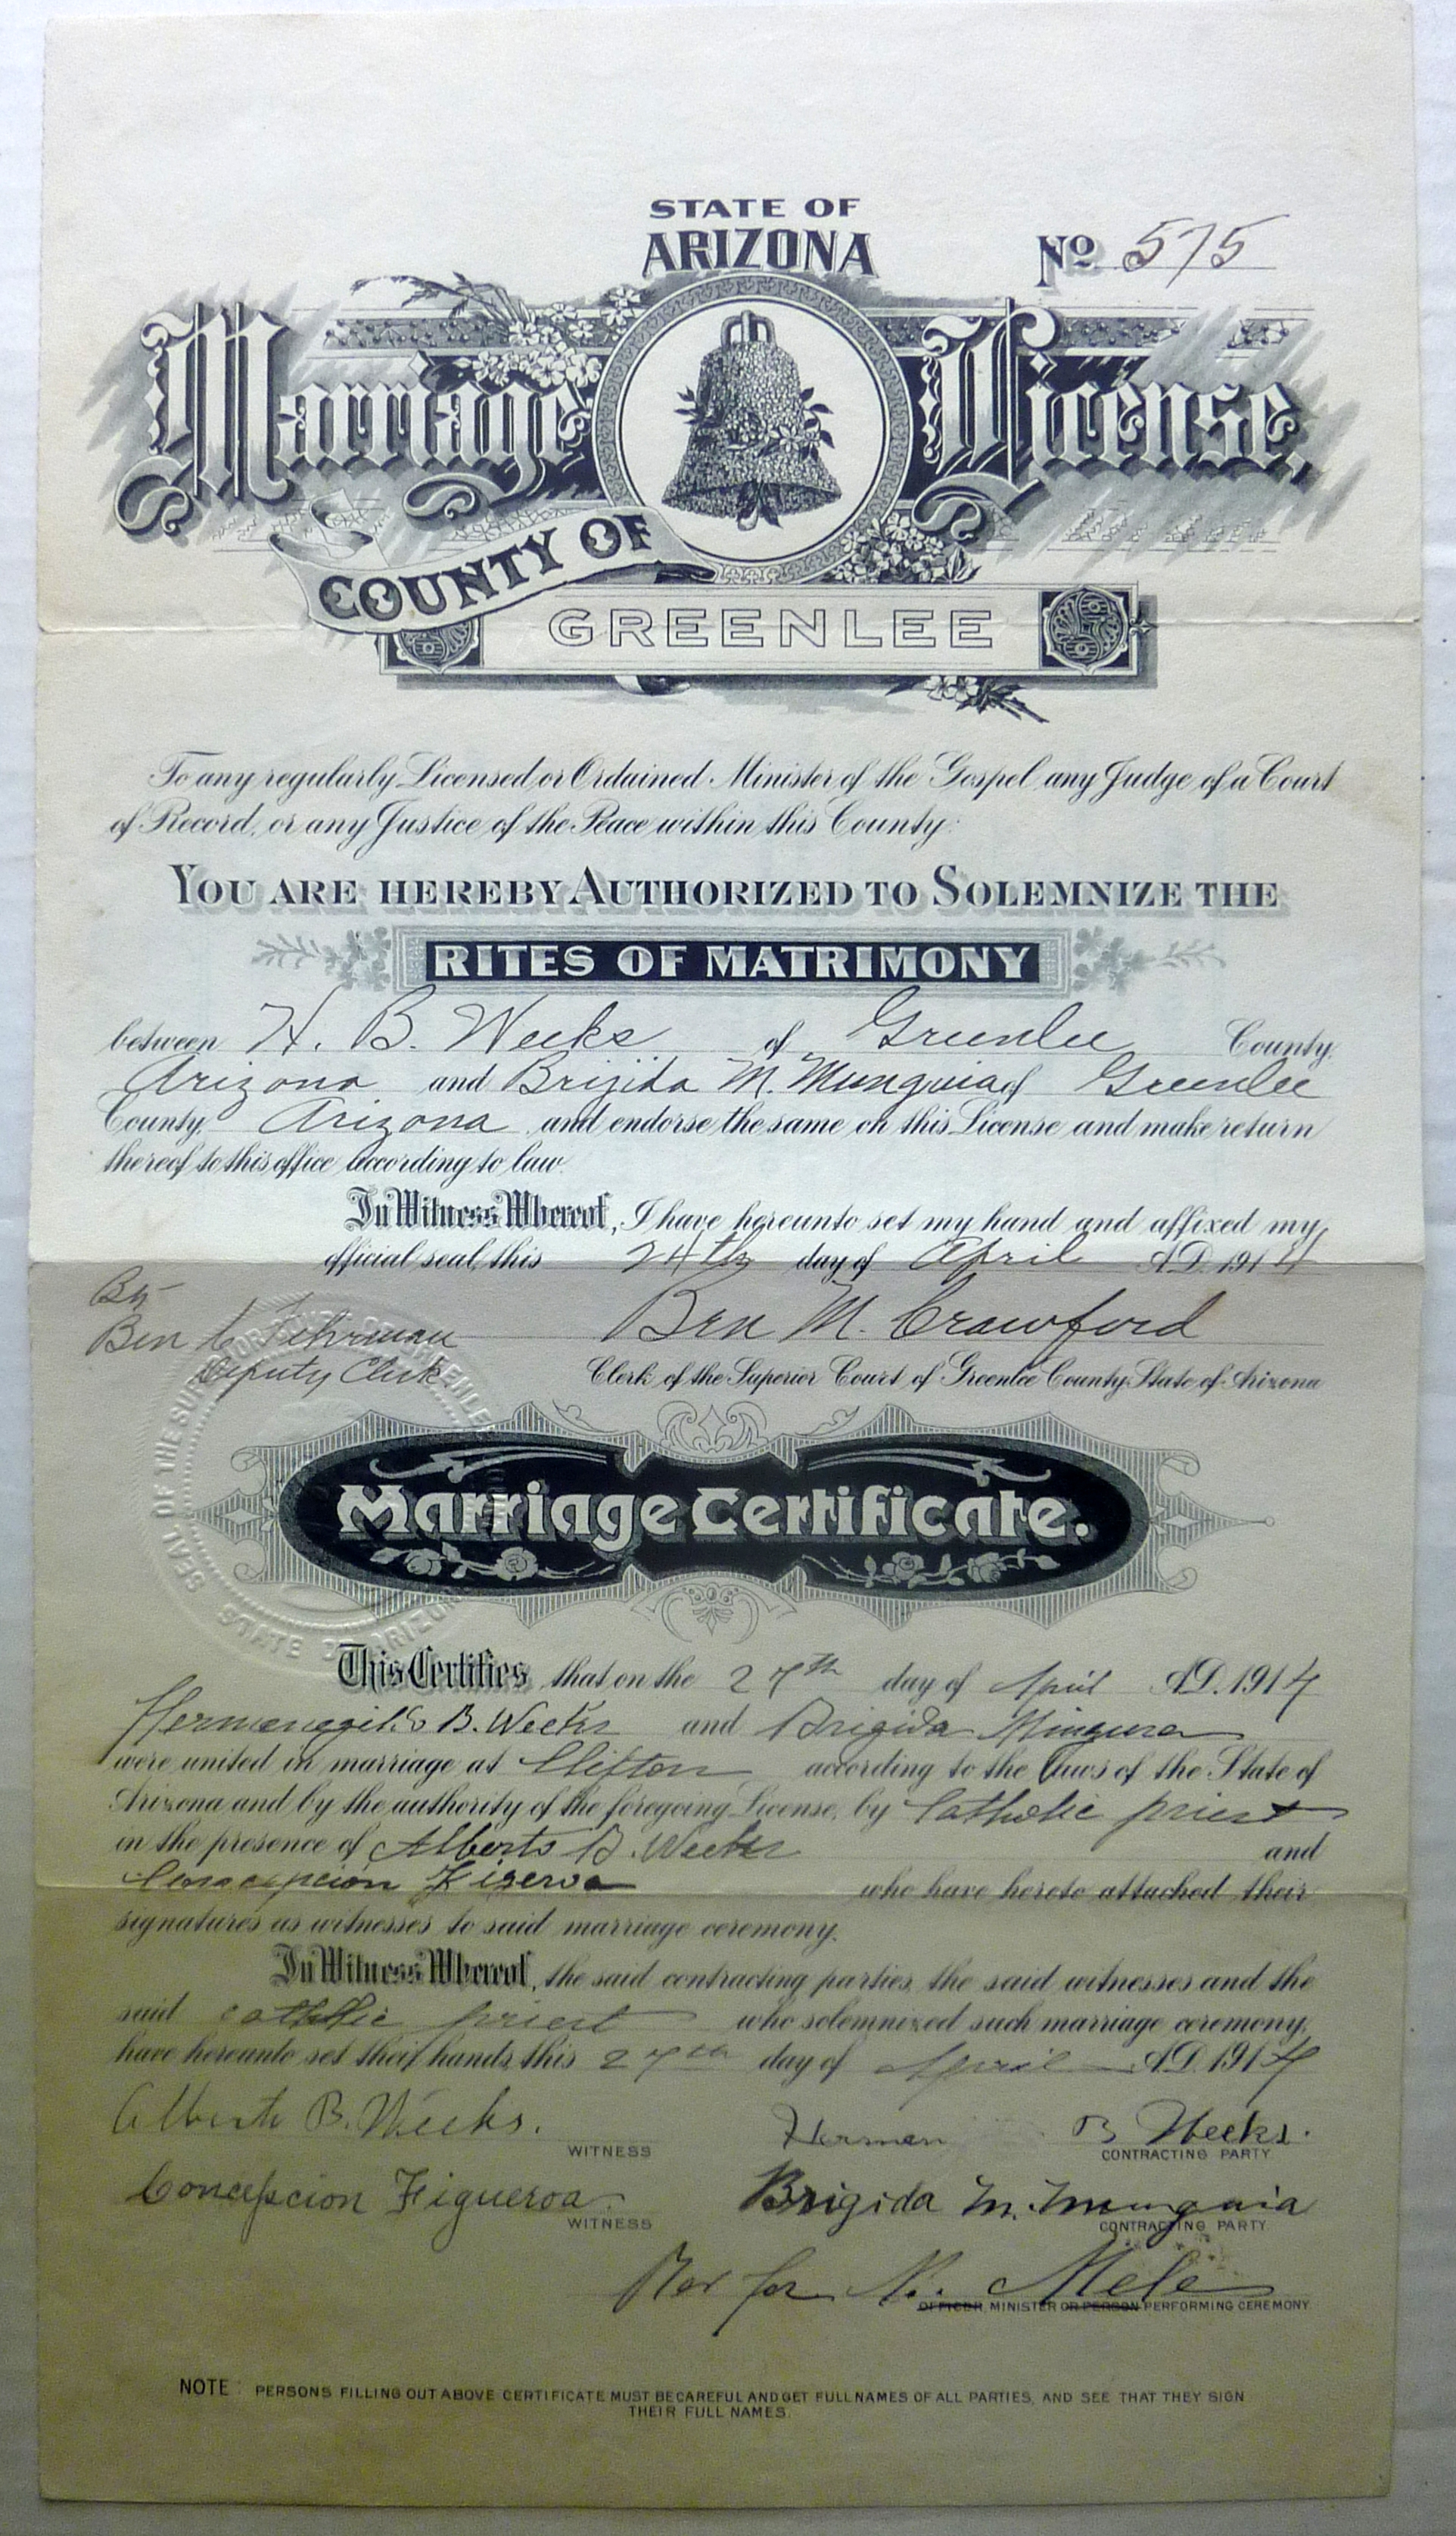 STATE OF
ARIZONA
No 575
Marriage License,
COUNTY OF
GREENLEE
To any regularly Licensed or Ordained Minister of the Gospel any Judge of a Court
of Record, or any Justice of the Peace within this County:
YOU ARE HEREBY AUTHORIZED TO SOLEMNIZE THE
RITES OF MATRIMONY
between H. B. Weeks of Greenlee County,
Arizona and Brijida M. Munguia of Greenlee
County, Arizona and endorse the same on this License and make return
thereof to this office according to law.
In Witness Whereof, I have hereunto set my hand and affixed my
official seal, this 24th day of April A.D. 1914
By
Ben C Fehrman Ben M. Crawford
Deputy Clerk Clerk of the Superior Court of Greenlee County, State of Arizona
SEAL OF THE SUPERIOR COURT OF GREENLEE
STATE OF ARIZONA
Marriage Certificate.
This Certifies that on the 27th day of April A.D. 1914
Hermenegildo B. Weeks and Brigida Mingura
were united in marriage at Clifton according to the laws of the State of
Arizona and by the authority of the foregoing License, by Catholic priest
in the presence of Alberto B. Weeks and
Concepcion Figeroa who have hereto attached their
signatures as witnesses to said marriage ceremony.
In Witness Whereof, the said contracting parties, the said witnesses and the
said catholic priest who solemnized such marriage ceremony,
have hereunto set their hands, this 27th day of April A.D. 1914
Alberto B. Weeks. Herman B Weeks.
WITNESS CONTRACTING PARTY
Concepcion Figueroa. Brigida M. Munguia
WITNESS CONTRACTING PARTY
Mele
OFFICER, MINISTER OR PERSON PERFORMING CEREMONY
NOTE: PERSONS FILLING OUT ABOVE CERTIFICATE MUST BE CAREFUL AND GET FULL NAMES OF ALL PARTIES, AND SEE THAT THEY SIGN
THEIR FULL NAMES.